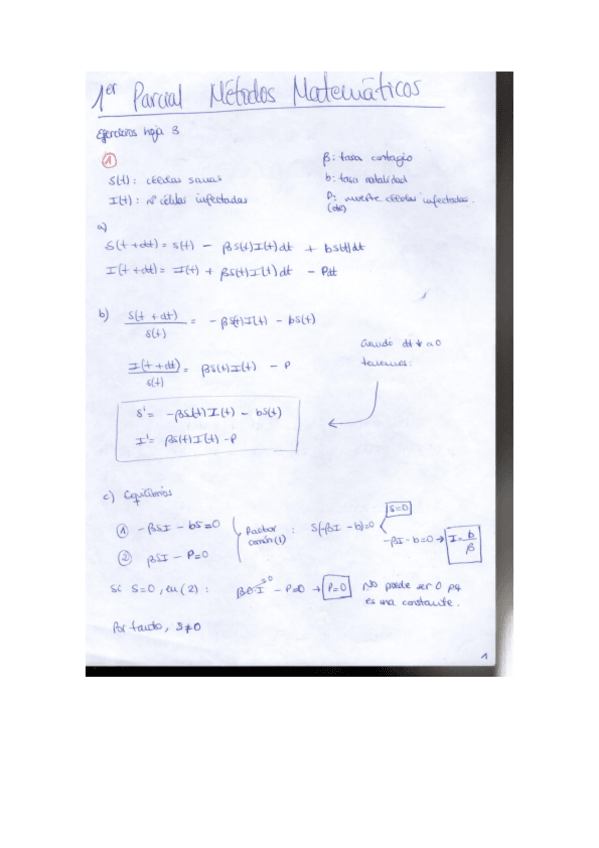 1er Parcial Métodos Matemáticos
Ejercicios hoja 3
1
β: tasa contagio
S(t): células sanas
b: tasa natalidad
I(t): nº células infectadas
P: muerte células infectadas.
(cte)
a)
S(t+dt) = S(t) - βS(t)I(t)dt + bS(t)dt
I(t+dt) = I(t) + βS(t)I(t)dt - Pdt
b) S(t+dt)/S(t) = -βS(t)I(t) - bS(t)
I(t+dt)/S(t) = βS(t)I(t) - P
Cuando dt ↓ a 0
tenemos:
S' = -βS(t)I(t) - bS(t)
I' = βS(t)I(t) - P
c) Equilibrios
① -βSI - bS=0
② βSI - P=0
Factor común(1) : S(-βI - b)=0
S=0
-βI - b=0 → I= b/β
Si S=0, en (2): β·0·I - P=0 → P=0 No puede ser 0 pq
es una constante.
Por tanto, S≠0
1